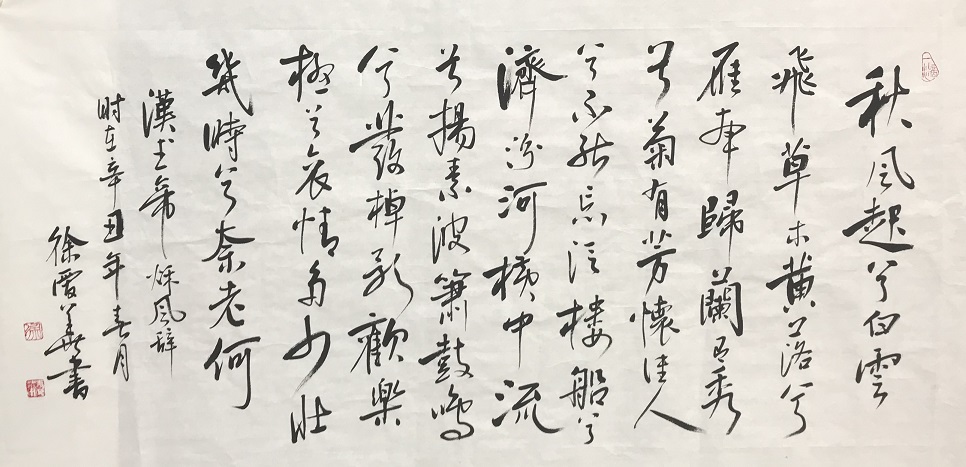 秋風起兮白雲
飛草木黄落兮
雁南歸蘭有秀
兮菊有芳懷佳人
兮不能忘泛楼船兮
濟汾河横中流
兮揚素波簫鼓鳴
兮發棹歌歡樂
極兮哀情多少壮
幾時兮奈老何
漢武帝秌風辞
时在辛丑年春月
徐愛華書